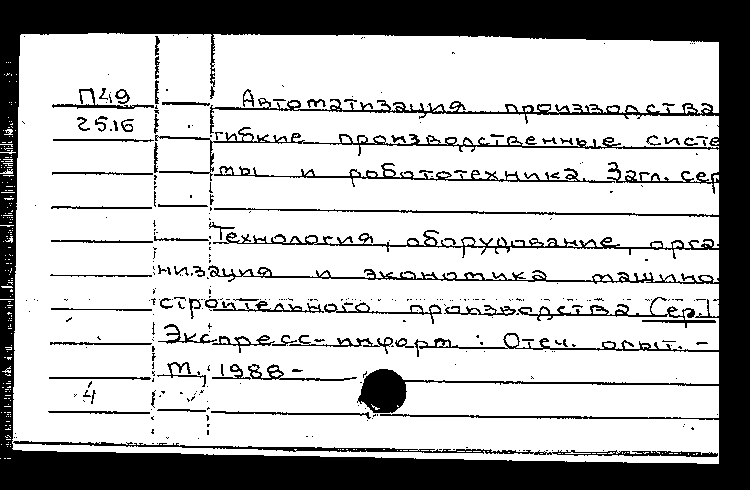 П49
25.16
Автоматизация производства
гибкие производственные систе
мы и робототехника. Загл. сер
Технология, оборудование, орга-
низация и экономика машино-
строительного производства. Сер. 1
Экспресс-информ : Отеч. опыт. -
М., 1988-
4